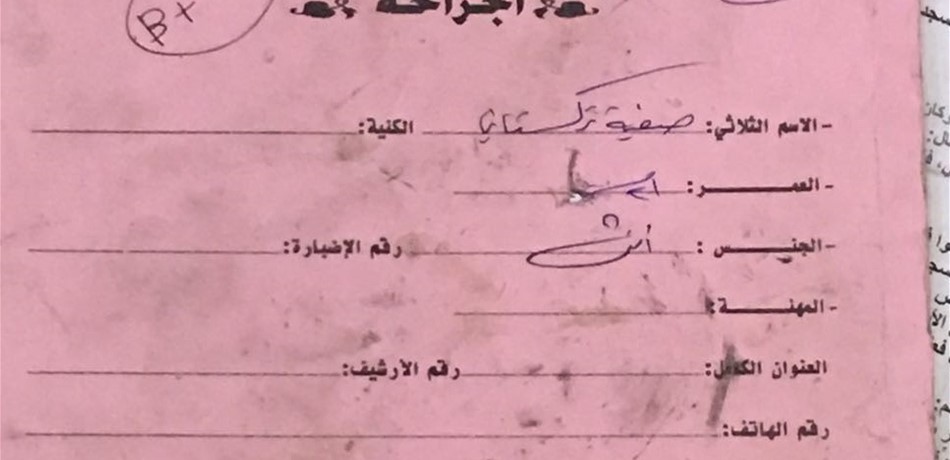 B+
الجراحة
- الاسم الثلاثي: صفية تركستاني الكنية:
- العمـــــــر:
- الجنـــــس : أنثى رقم الإضبارة:
- المهنـــــة:
العنوان الكامل: رقم الأرشيف:
رقم الهاتف: